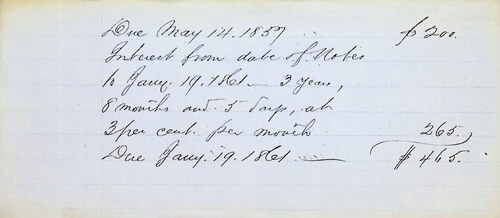 Due May 14. 1857 $ 200.
Interest from date of Notes
to Jany. 19. 1861 — 3 years,
8 months and 5 days, at
3 per cent. per month 265.
Due Jany. 19. 1861 — $ 465.